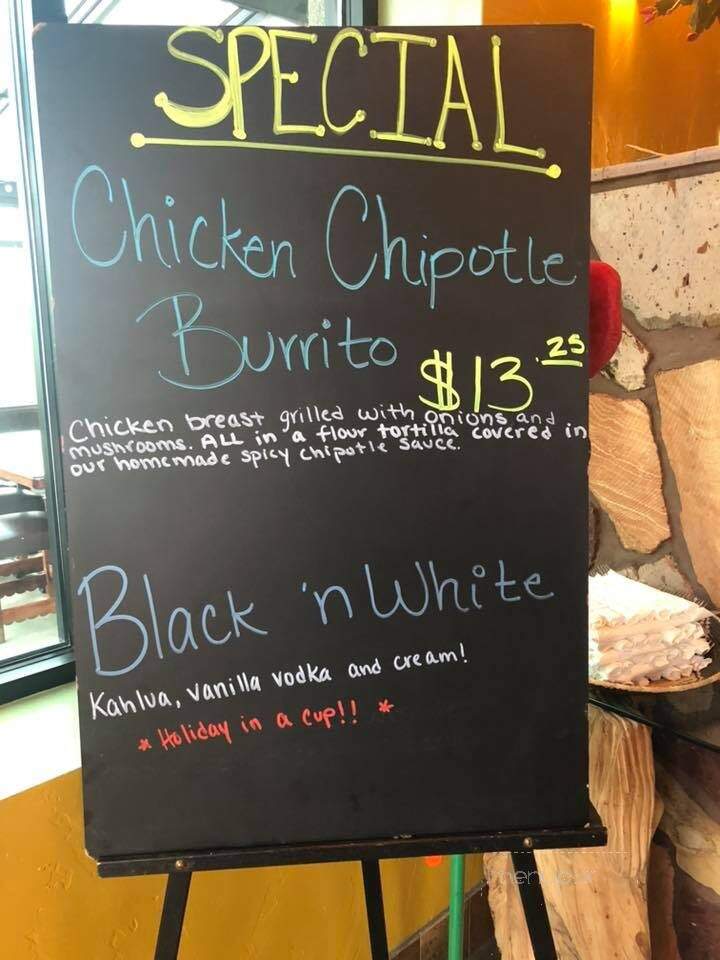 SPECIAL
Chicken Chipotle
Burrito $13.25
Chicken breast grilled with onions and
mushrooms. ALL in a flour tortilla covered in
our homemade spicy chipotle sauce.
Black 'n White
Kahlua, vanilla vodka and cream!
* Holiday in a cup!! *